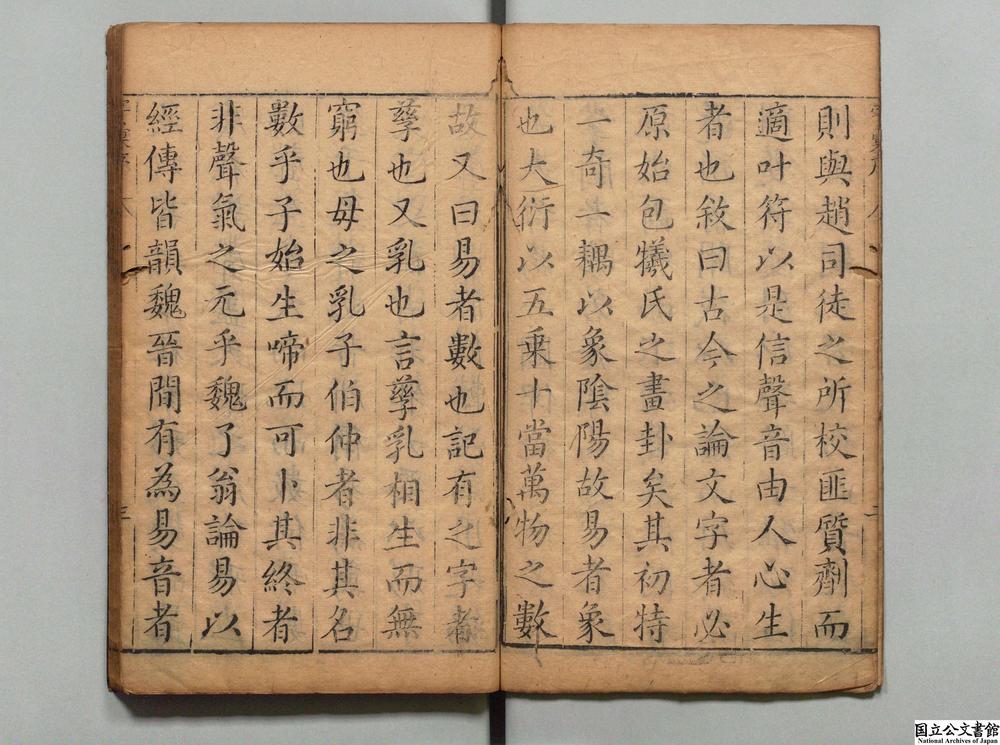 則與趙司徒之所校匪質劑而
適叶符以是信聲音由人心生
者也敘曰古今之論文字者必
原始包犧氏之畫卦矣其初特
一奇一耦以象陰陽故易者象
也大衍以五乗十當萬物之數
故又曰易者數也記有之字者
孳也又乳也言孳乳相生而無
窮也母之乳子伯仲者非其名
數乎子始生啼而可卜其終者
非聲氣之元乎魏了翁論易以
經傳皆韻魏晉間有為易音者
三
国立公文書館
National Archives of Japan